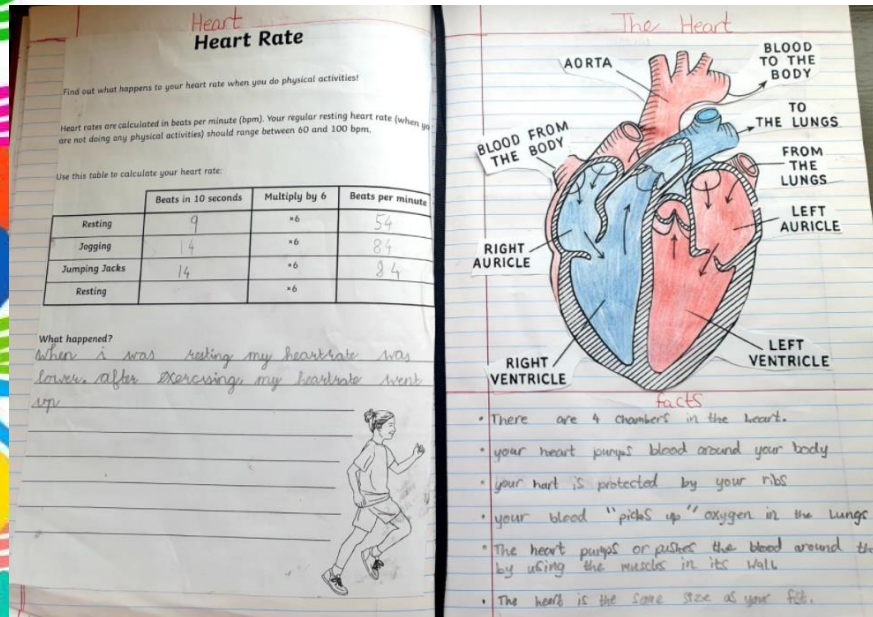 Heart
Heart Rate
Find out what happens to your heart rate when you do physical activities!
Heart rates are calculated in beats per minute (bpm). Your regular resting heart rate (when
are not doing any physical activities) should range between 60 and 100 bpm.
Use this table to calculate your heart rate:
Beats in 10 seconds Multiply by 6 Beats per minute
Resting 9 ×6 54
Jogging 14 ×6 84
Jumping Jacks 14 ×6 84
Resting ×6
What happened?
When i was resting my heartrate was
lower. after exercising, my heartrate went
up
The Heart
AORTA
BLOOD
TO THE
BODY
TO
THE LUNGS
BLOOD FROM
THE BODY
FROM
THE
LUNGS
LEFT
AURICLE
RIGHT
AURICLE
LEFT
VENTRICLE
RIGHT
VENTRICLE
facts
• There are 4 chambers in the heart.
• your heart pumps blood around your body
• your hart is protected by your ribs
• your blood "picks up" oxygen in the Lungs
• The heart pumps or pushes the blood around
by using the muscles in its wall
• The heart is the same size as your fist.